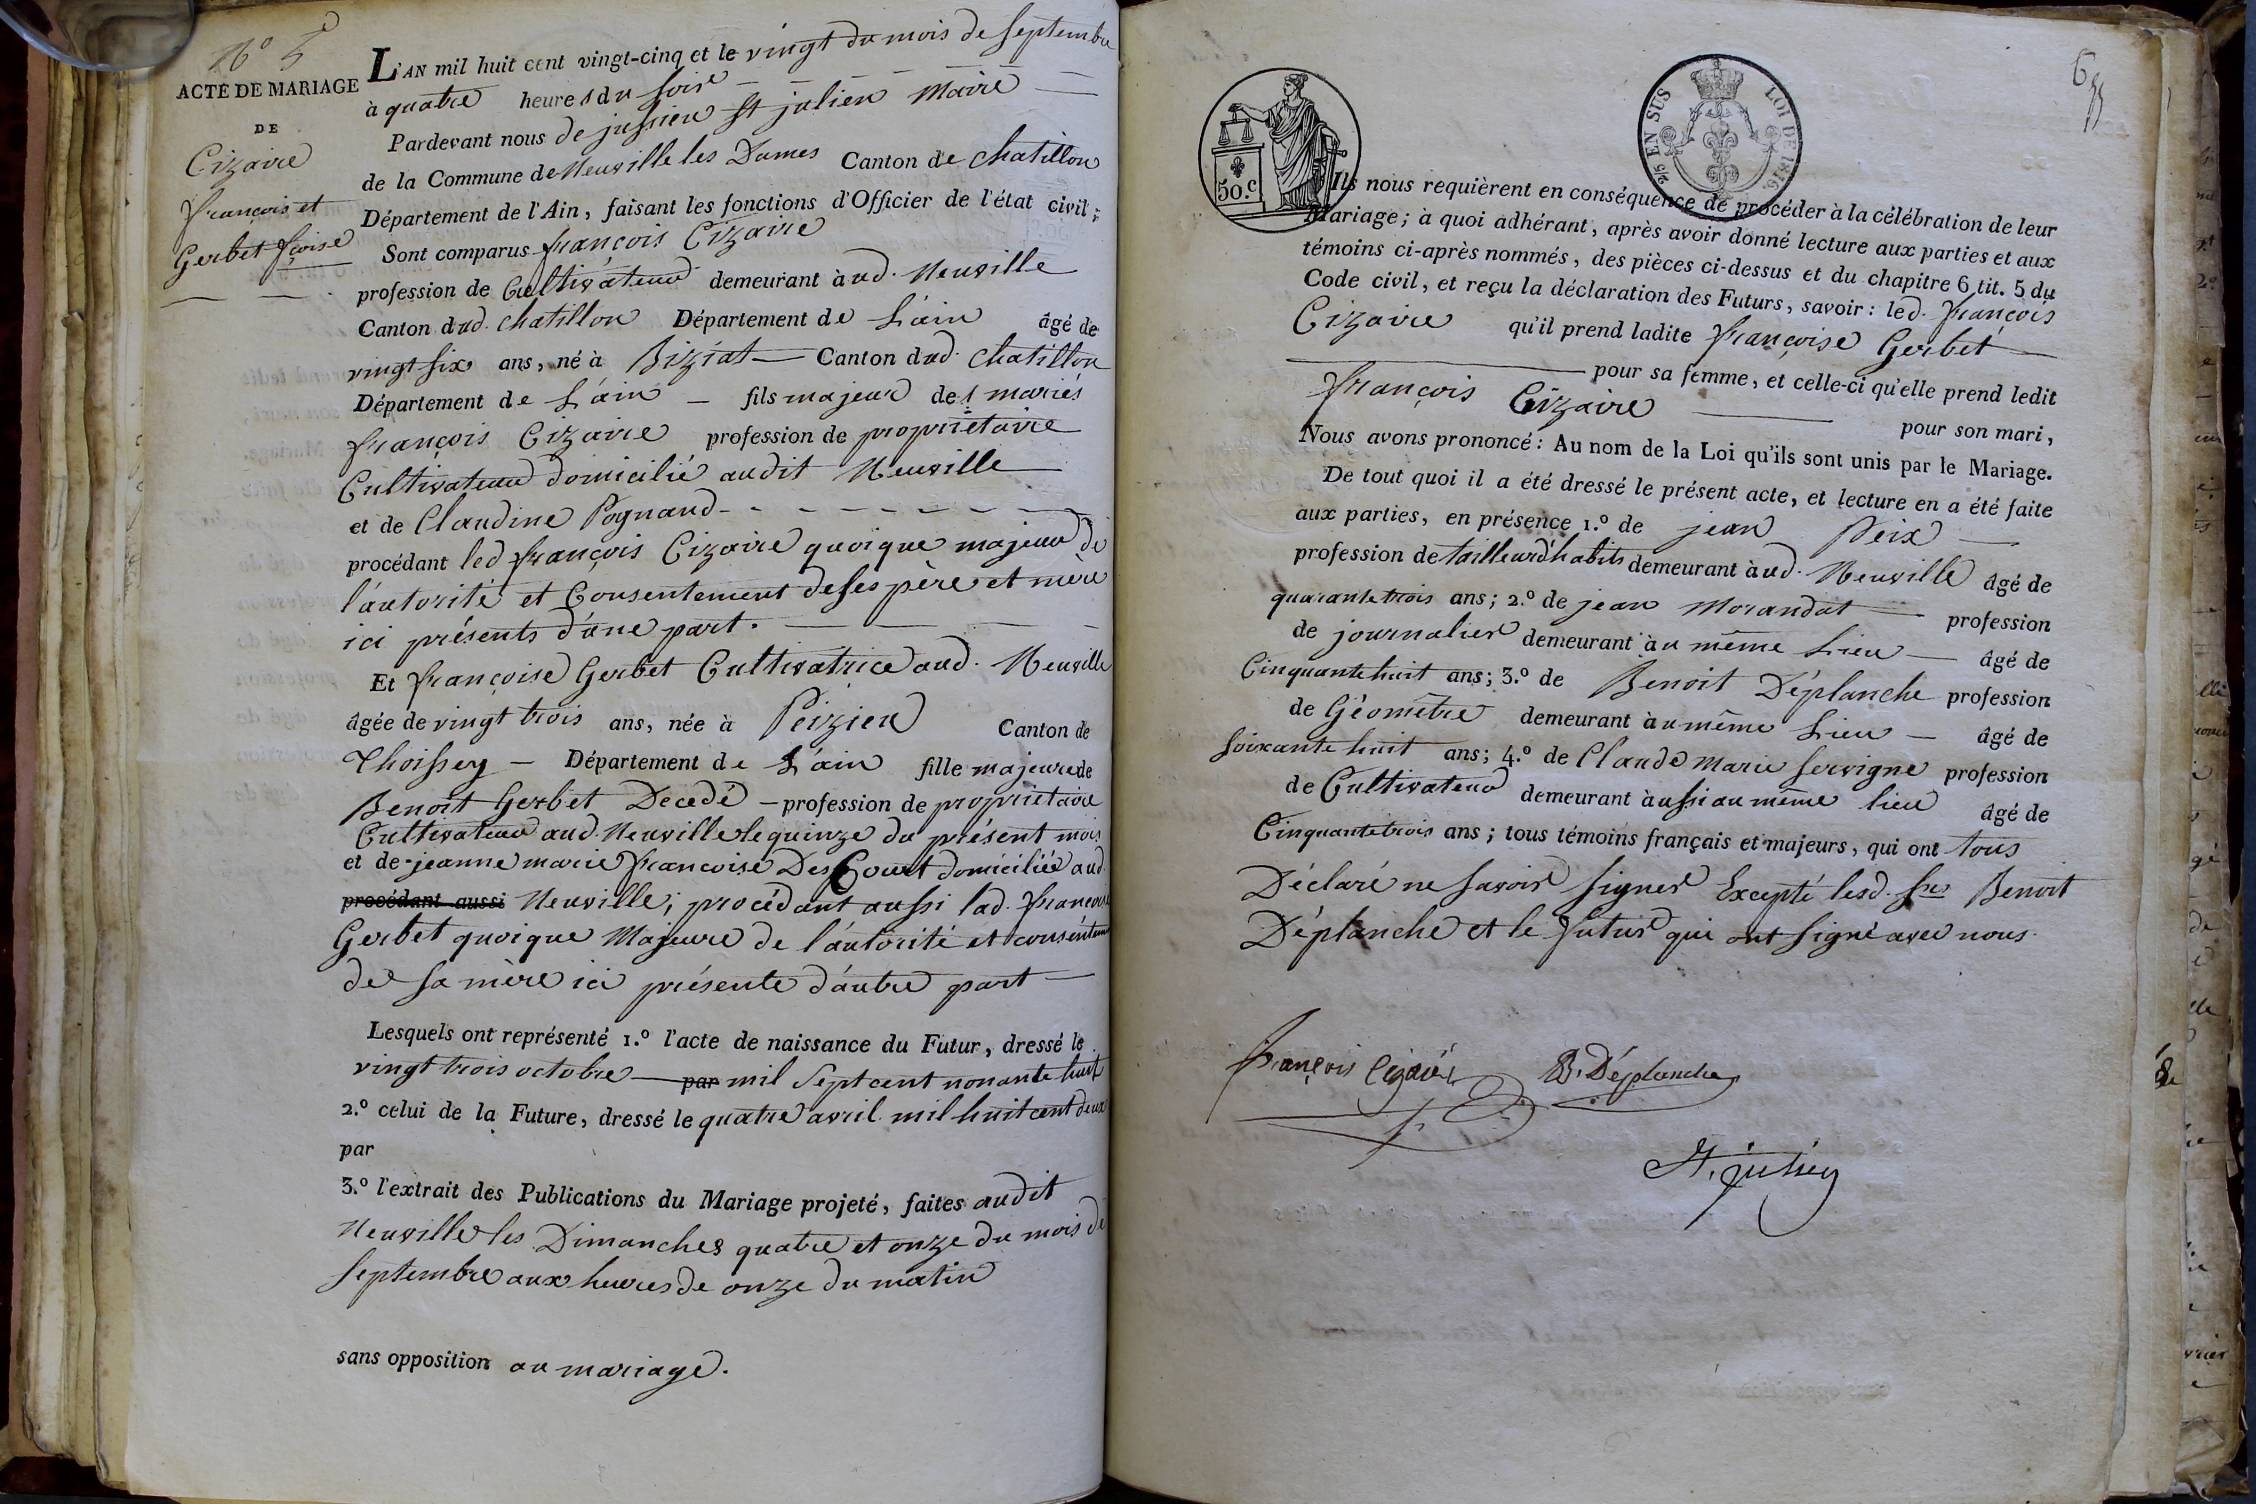 N° 5
ACTE DE MARIAGE
DE
Cizaire
françois et
Gerbet fçoise
L'AN mil huit cent vingt-cinq et le vingt du mois de septembre
à quatre heures du soir
Pardevant nous de jussieu St julien Maire
de la Commune de Neuville les Dames Canton de chatillon
Département de l'Ain, faisant les fonctions d'Officier de l'état civil;
Sont comparus françois Cizaire
profession de Cultivateur demeurant à ud. Neuville
Canton dud. chatillon Département de L'ain âgé de
vingt six ans, né à Biziat Canton dud. chatillon
Département de L'ain fils majeur des mariés
françois Cizaire profession de propriétaire
Cultivateur domicilié audit Neuville
et de Claudine Pognaud
procédant led françois Cizaire quoique majeur de
l'autorité et Consentement de ses père et mère
ici présents d'une part.
Et françoise Gerbet Cultivatrice aud. Neuville
âgée de vingt trois ans, née à Peizieu Canton de
Thoissey Département de L'ain fille majeure de
Benoit Gerbet Decedé profession de propriétaire
Cultivateur aud. Neuville le quinze du présent mois
et de jeanne marie françoise Des Court domiciliée aud.
procédant aussi Neuville; procédant aussi lad. françoise
Gerbet quoique Majeure de l'autorité et consentement
de sa mère ici présente d'autre part
Lesquels ont représenté 1.° l'acte de naissance du Futur, dressé le
vingt trois octobre par mil Sept cent nonante huit
2.° celui de la Future, dressé le quatre avril mil huit cent deux
par
3.° l'extrait des Publications du Mariage projeté, faites audit
Neuville les Dimanches quatre et onze du mois de
septembre aux heures de onze du matin
sans opposition au mariage.
50.c
25 EN SUS LOI DE 1816
Ils nous requièrent en conséquence de procéder à la célébration de leur
Mariage; à quoi adhérant, après avoir donné lecture aux parties et aux
témoins ci-après nommés, des pièces ci-dessus et du chapitre 6 tit. 5 du
Code civil, et reçu la déclaration des Futurs, savoir: led. françois
Cizaire qu'il prend ladite françoise Gerbet
pour sa femme, et celle-ci qu'elle prend ledit
françois Cizaire pour son mari,
Nous avons prononcé: Au nom de la Loi qu'ils sont unis par le Mariage.
De tout quoi il a été dressé le présent acte, et lecture en a été faite
aux parties, en présence 1.° de jean Peix
profession de tailleur d'habits demeurant à ud. Neuville âgé de
quarante trois ans; 2.° de jean Morandat profession
de journalier demeurant à u même Lieu âgé de
Cinquante huit ans; 3.° de Benoit Déplanche profession
de Géomètre demeurant à u même Lieu âgé de
soixante huit ans; 4.° de Claude Marie servigne profession
de Cultivateur demeurant à ussi au même lieu âgé de
Cinquante trois ans; tous témoins français et majeurs, qui ont tous
Déclaré ne savoir signer Excepté lesd. srs Benoit
Déplanche et le futur qui ont signé avec nous.
françois Cizaire B. Déplanche
St. julien